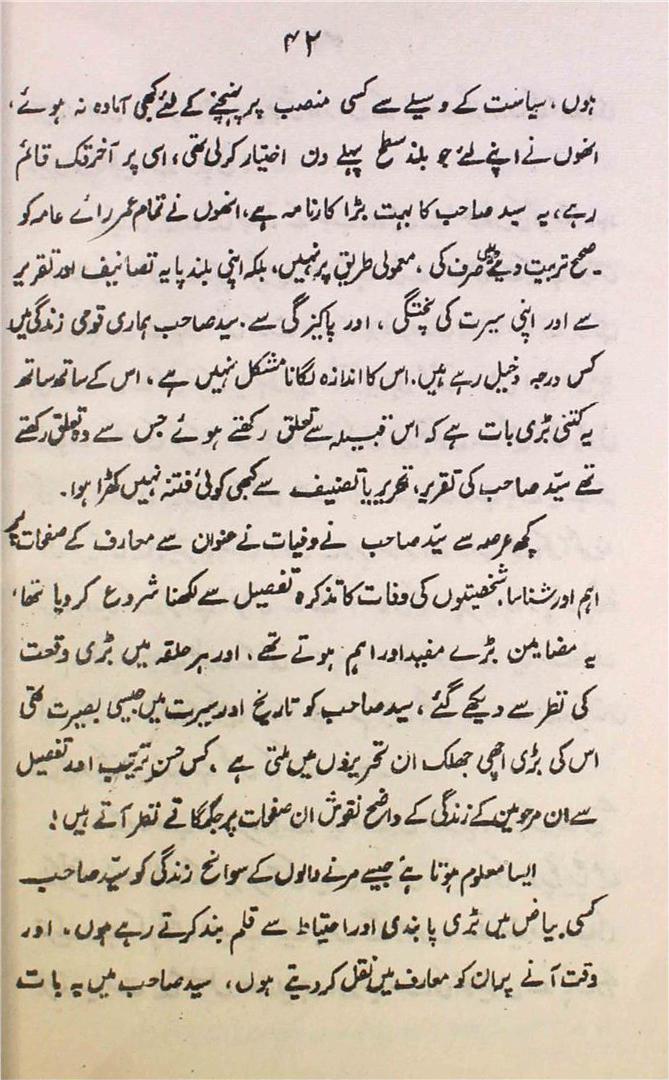 ۴۲
ہوں، سیاست کے وسیلے سے کسی منصب پر پہنچنے کے لئے کبھی آمادہ نہ ہوئے،
انھوں نے اپنے لئے جو بلند سطح پہلے دن اختیار کر لی تھی، اسی پر آخر تک قائم
رہے، یہ سید صاحب کا بہت بڑا کارنامہ ہے، انھوں نے تمام عمر رائے عامہ کو
صحیح تربیت دینے میں صرف کی، معمولی طریق پر نہیں، بلکہ اپنی بلند پایہ تصانیف اور تقریر
سے اور اپنی سیرت کی پختگی، اور پاکیزگی سے۔ سید صاحب ہماری قومی زندگی میں
کس درجہ دخیل رہے ہیں۔ اس کا اندازہ لگانا مشکل نہیں ہے، اس کے ساتھ ساتھ
یہ کتنی بڑی بات ہے کہ اس قبیلہ سے تعلق رکھتے ہوئے جس سے وہ تعلق رکھتے
تھے سیّد صاحب کی تقریر، تحریر یا تصنیف سے کبھی کوئی فتنہ نہیں کھڑا ہوا۔
کچھ عرصہ سے سیّد صاحب نے وفیات نے عنوان سے معارف کے صفحات پر
اہم اور شناسا شخصیتوں کی وفات کا تذکرہ تفصیل سے لکھنا شروع کر دیا تھا،
یہ مضامین بڑے مفید اور اہم ہوتے تھے، اور ہر حلقہ میں بڑی وقعت
کی نظر سے دیکھے گئے، سید صاحب کو تاریخ اور سیرت میں جیسی بصیرت تھی
اس کی بڑی اچھی جھلک ان تحریروں میں ملتی ہے۔ کس حسنِ ترتیب اور تفصیل
سے ان مرحومین کے زندگی کے واضح نقوش ان صفحات پر جگمگاتے نظر آتے ہیں!
ایسا معلوم ہوتا ہے جیسے مرنے والوں کے سوانح زندگی کو سیّد صاحب
کسی بیاض میں بڑی پابندی اور احتیاط سے قلم بند کرتے رہے ہوں، اور
وقت آنے پر ان کو معارف میں نقل کر دیتے ہوں، سید صاحب میں یہ بات